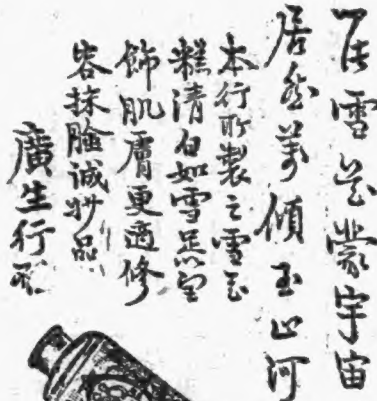 一片雪花蒙宇宙
居然萬傾玉山河
本行所製之雪花
糕清白如雪
飾肌膚更適修
容抹臉誠妙品
廣生行